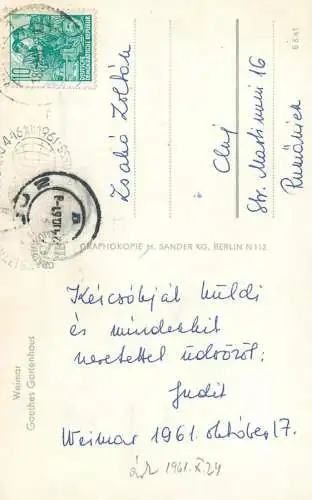 Kézcsókját küldi
és mindenkit
szeretettel üdvözöl:
Judit
Weimar 1961. október 17.
1961. X. 24
Szabó Zoltán
Cluj
Str. Martinuzzi 16
Rumänien
GRAPHOKOPIE H. SANDER KG, BERLIN N 113
Weimar
Goethes Gartenhaus
10
DEUTSCHE DEMOKRATISCHE REPUBLIK